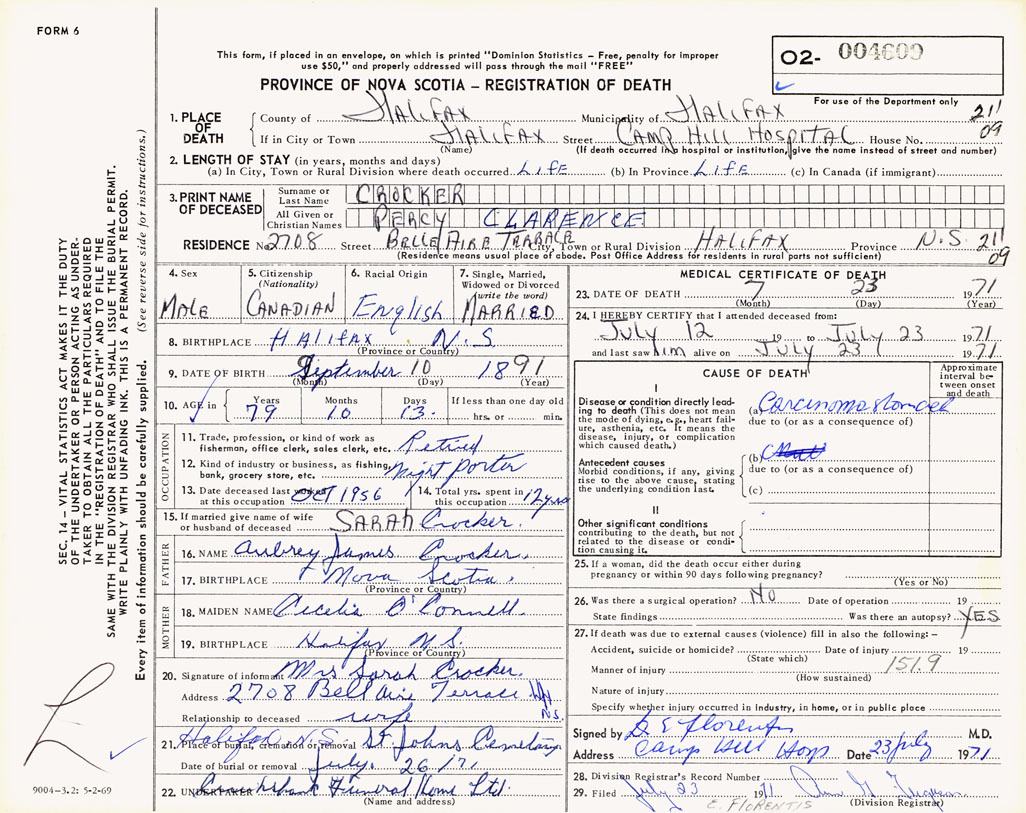 FORM 6
This form, if placed in an envelope, on which is printed "Dominion Statistics – Free, penalty for improper
use $50," and properly addressed will pass through the mail "FREE"
PROVINCE OF NOVA SCOTIA – REGISTRATION OF DEATH
O2- 004609
For use of the Department only
1. PLACE OF DEATH
County of HALIFAX Municipality of HALIFAX 211
If in City or Town HALIFAX Street CAMP HILL HOSPITAL House No. 09
(Name) (If death occurred in a hospital or institution, give the name instead of street and number)
2. LENGTH OF STAY (in years, months and days)
(a) In City, Town or Rural Division where death occurred LIFE (b) In Province LIFE (c) In Canada (if immigrant)
3. PRINT NAME OF DECEASED
Surname or Last Name CROCKER
All Given or Christian Names PERCY CLARENCE
RESIDENCE No 2708 Street BELLE AIRE TERRACE City, Town or Rural Division HALIFAX Province N.S. 211
(Residence means usual place of abode. Post Office Address for residents in rural parts not sufficient) 09
4. Sex MALE
5. Citizenship (Nationality) CANADIAN
6. Racial Origin English
7. Single, Married, Widowed or Divorced (write the word) MARRIED
8. BIRTHPLACE HALIFAX N.S.
(Province or Country)
9. DATE OF BIRTH September 10 1891
(Month) (Day) (Year)
10. AGE in Years 79 Months 10 Days 13. If less than one day old hrs. or min.
OCCUPATION
11. Trade, profession, or kind of work as fisherman, office clerk, sales clerk, etc. Retired
12. Kind of industry or business, as fishing, bank, grocery store, etc. Night Porter
13. Date deceased last worked at this occupation OCT 1956
14. Total yrs. spent in this occupation 12 yrs
15. If married give name of wife or husband of deceased SARAH Crocker.
FATHER
16. NAME Aubrey James Crocker.
17. BIRTHPLACE Nova Scotia.
(Province or Country)
MOTHER
18. MAIDEN NAME Cecelia O'Connell.
19. BIRTHPLACE Halifax N.S.
(Province or Country)
20. Signature of informant Mrs Sarah Crocker.
Address 2708 Bell Aire Terrace Hfx N.S.
Relationship to deceased wife
21. Place of burial, cremation or removal Halifax N.S. St Johns Cemetary
Date of burial or removal July. 26/71
22. UNDERTAKER Funeral Home Ltd.
(Name and address)
MEDICAL CERTIFICATE OF DEATH
23. DATE OF DEATH 7 23 1971
(Month) (Day) (Year)
24. I HEREBY CERTIFY that I attended deceased from:
July 12 19 to July 23 1971
and last saw him alive on July 23 1971
CAUSE OF DEATH
Approximate interval between onset and death
I
Disease or condition directly leading to death (This does not mean the mode of dying, e.g., heart failure, asthenia, etc. It means the disease, injury, or complication which caused death.)
(a) Carcinoma stomach
due to (or as a consequence of)
Antecedent causes
Morbid conditions, if any, giving rise to the above cause, stating the underlying condition last.
(b)
due to (or as a consequence of)
(c)
II
Other significant conditions contributing to the death, but not related to the disease or condition causing it.
25. If a woman, did the death occur either during pregnancy or within 90 days following pregnancy?
(Yes or No)
26. Was there a surgical operation? NO Date of operation 19
State findings Was there an autopsy? YES
27. If death was due to external causes (violence) fill in also the following: –
Accident, suicide or homicide? Date of injury 19
(State which)
Manner of injury 151.9
(How sustained)
Nature of injury
Specify whether injury occurred in industry, in home, or in public place
Signed by E Florentis M.D.
Address Camp Hill Hosp Date 23 July 1971
28. Division Registrar's Record Number
29. Filed July 23 1971
(Division Registrar)
E. FLORENTIS
SEC. 14 – VITAL STATISTICS ACT MAKES IT THE DUTY
OF THE UNDERTAKER OR PERSON ACTING AS UNDER-
TAKER TO OBTAIN ALL THE PARTICULARS REQUIRED
IN THE "REGISTRATION OF DEATH" AND TO FILE THE
SAME WITH THE DIVISION REGISTRAR WHO SHALL ISSUE THE BURIAL PERMIT.
WRITE PLAINLY WITH UNFADING INK. THIS IS A PERMANENT RECORD.
Every item of information should be carefully supplied. (See reverse side for instructions.)
9004-3.2: 5-2-69